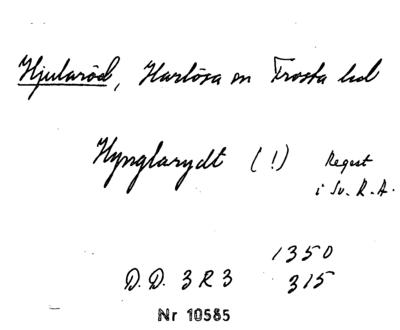 Hjularöd, Harlösa sn Frosta hd
Hynglarydt (!) Regest
i Sv. R.A.
1350
D.D. 3 R 3 315
Nr 10585